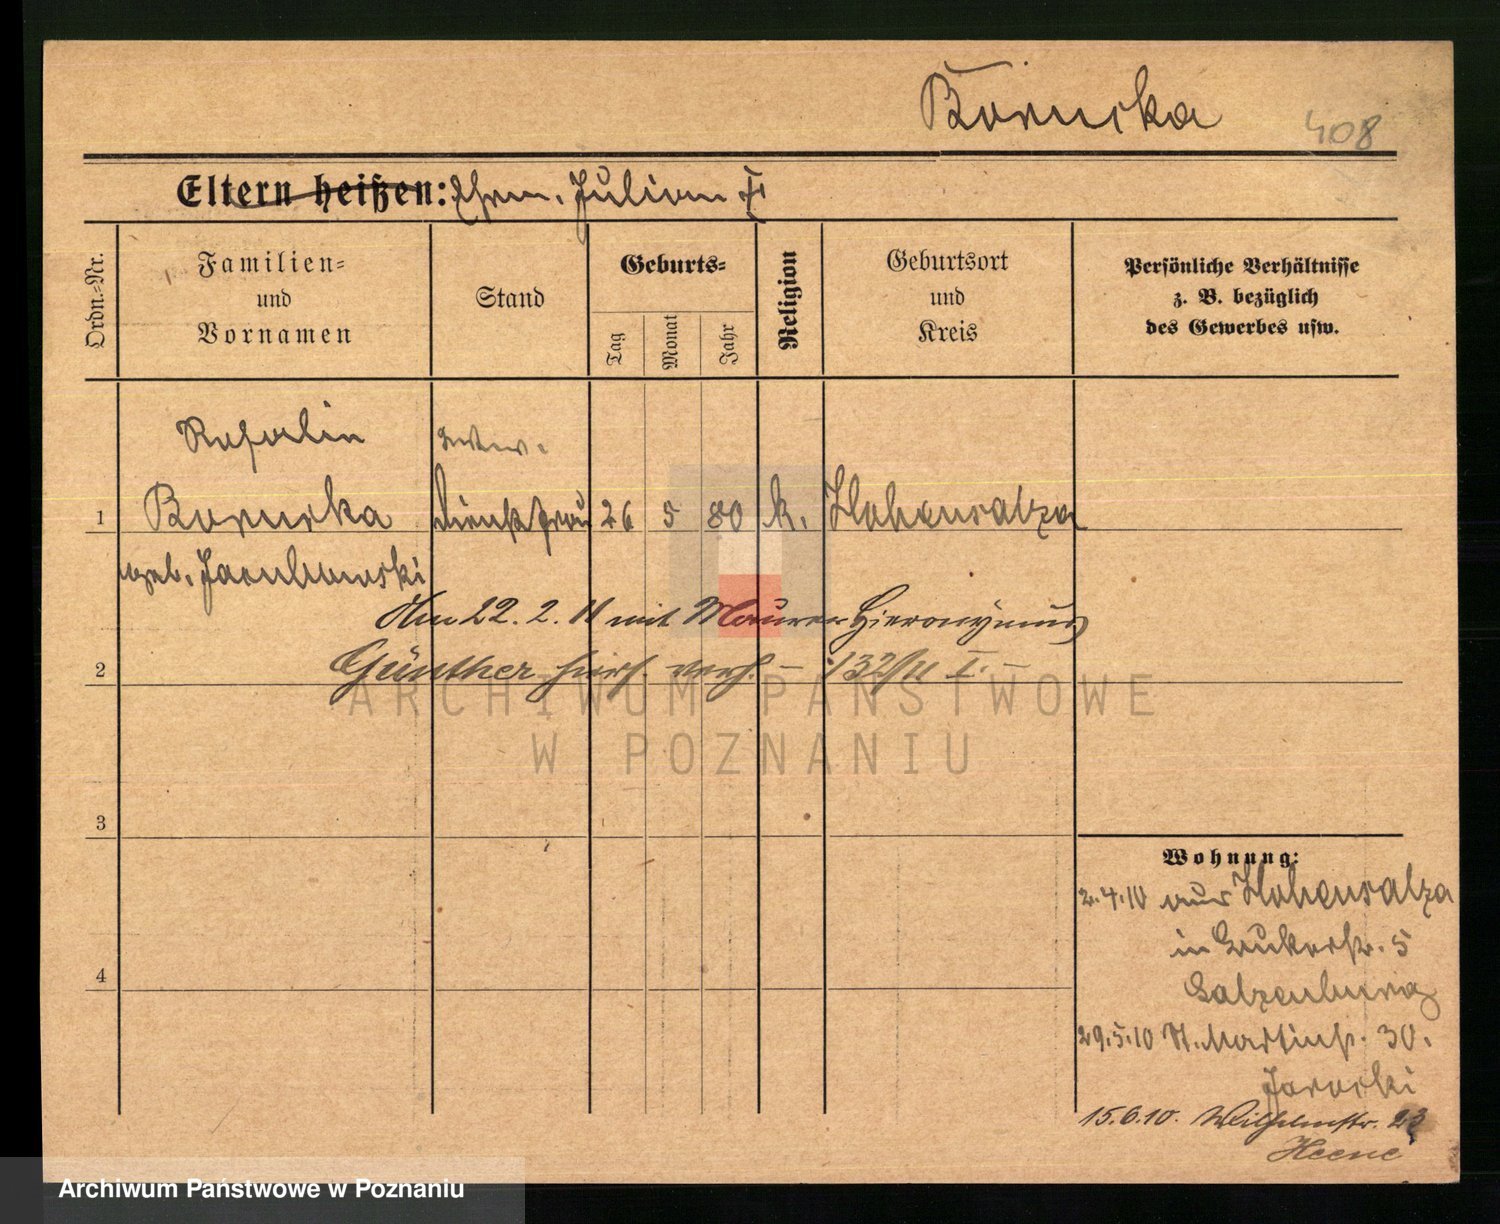 Borucka
408
Eltern heißen: Ehem. Julian
Ordn.=Nr.
Familien=
und
Vornamen
Stand
Geburts=
Tag
Monat
Jahr
Religion
Geburtsort
und
Kreis
Persönliche Verhältnisse
z. B. bezüglich
des Gewerbes usw.
Rosalie
1 Borucka Dienstfrau 26 5 80 k. Hohensalza
geb.
Am 22. 2. 11 mit Maurer Hieronÿmus
2 Günther hies. verh. – 132/11 I. –
3
4
Wohnung:
2.4.10 aus Hohensalza
in 5
29.5.10 St. Martinstr. 30.
15.6.10. Wilhelmstr. 23
Heene
ARCHIWUM PAŃSTWOWE
W POZNANIU
Archiwum Państwowe w Poznaniu